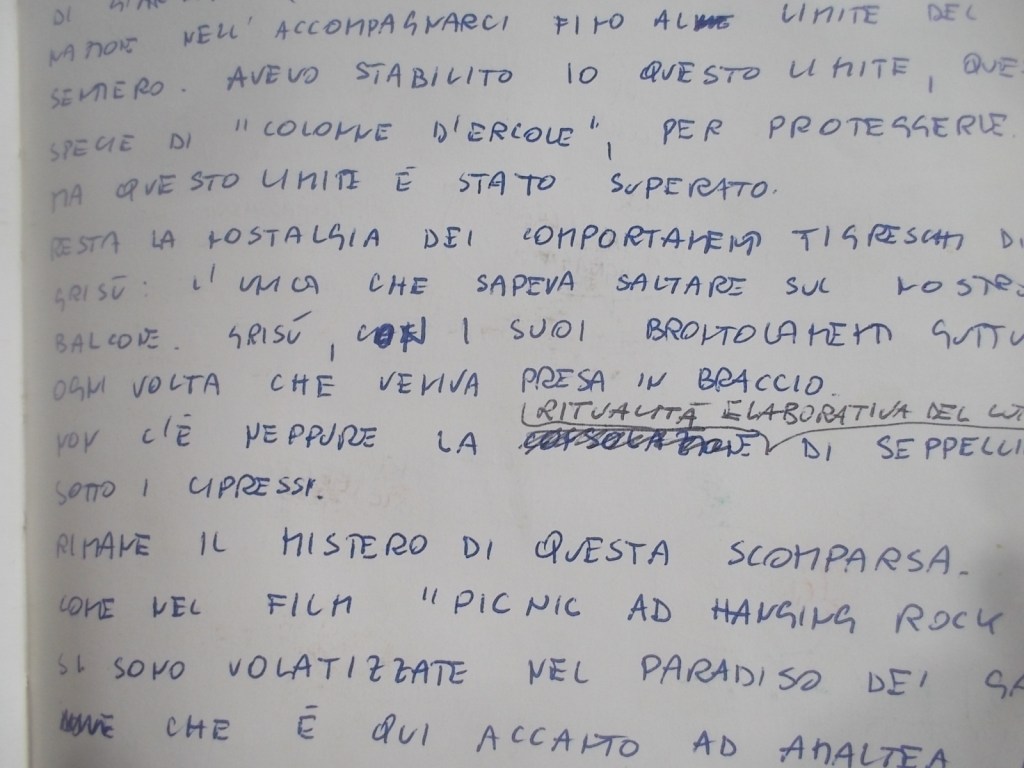 DI
NELL' ACCOMPAGNARCI FINO AL LIMITE DEL
SENTIERO. AVEVO STABILITO IO QUESTO LIMITE, QUE
SPECIE DI "COLONNE D'ERCOLE", PER PROTEGGERLE.
MA QUESTO LIMITE È STATO SUPERATO.
RESTA LA NOSTALGIA DEI COMPORTAMENTI TIGRESCHI DI
GRISÙ: L'UNICA CHE SAPEVA SALTARE SUL NOSTRO
BALCONE. GRISÙ, CON I SUOI BRONTOLAMENTI GUTTU
OGNI VOLTA CHE VENIVA PRESA IN BRACCIO.
RITUALITÀ ELABORATIVA DEL LUT
NON C'È NEPPURE LA CONSOLAZIONE DI SEPPELLI
SOTTO I CIPRESSI.
RIMANE IL MISTERO DI QUESTA SCOMPARSA.
COME NEL FILM "PIC NIC AD HANGING ROCK
SI SONO VOLATIZZATE NEL PARADISO DEI GA
CHE È QUI ACCANTO AD AMALTEA